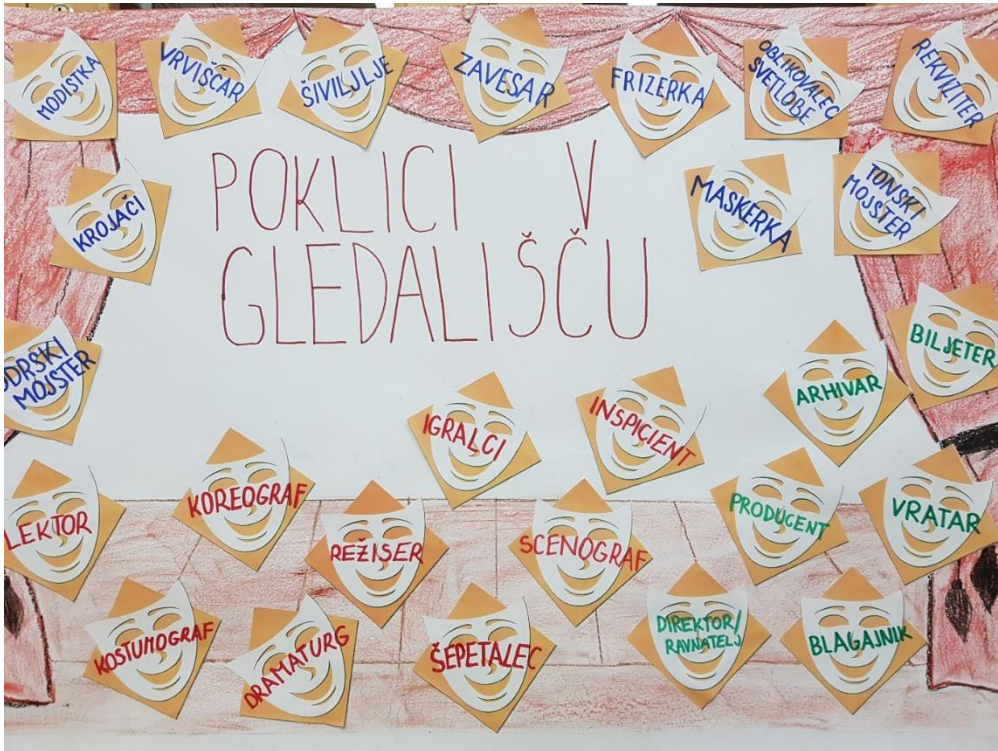 MODISTKA
VRVIŠČAR
ŠIVILJLJE
ZAVESAR
FRIZERKA
OBLIKOVALEC
SVETLOBE
REKVIZITER
POKLICI V
GLEDALIŠČU
KROJAČI
MASKERKA
TONSKI
MOJSTER
ODRSKI
MOJSTER
BILJETER
ARHIVAR
IGRALCI
INSPICIENT
LEKTOR
KOREOGRAF
REŽISER
SCENOGRAF
PRODUCENT
VRATAR
KOSTUMOGRAF
DRAMATURG
ŠEPETALEC
DIREKTOR/
RAVNATELJ
BLAGAJNIK